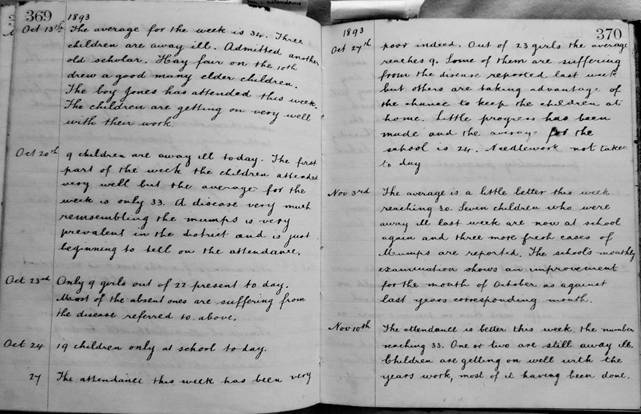 369
1893
Oct 13th The average for the week is 34. Three
children are away ill. Admitted another
old scholar. Hay four on the 10th
drew a good many elder children.
The boy Jones has attended this week.
The children are getting on very well
with their work.
Oct 20th 9 children are away ill today. The first
part of the week the children attended
very well but the average for the
week is only 33. A disease very much
remsembling the mumps is very
prevalent in the district and is just
beginning to tell on the attendance.
Oct 23rd Only 9 girls out of 22 present to day.
Most of the absent ones are suffering from
the disease referred to above.
Oct 24 19 children only at school to day.
27 The attendance this week has been very
1893
370
Oct 27th poor indeed. Out of 23 girls the average
reaches 9. Some of them are suffering
from the disease reported last week
but others are taking advantage of
the chance to keep the children at
home. Little progress has been
made and the average for the
school is 24. Needlework not taken
to day
Nov 3rd The average is a little better this week
reaching 30. Seven children who were
away ill last week are now at school
again and three more fresh cases of
Mumps are reported. The schools monthly
examination shows an improvement
for the month of October as against
last years corresponding month.
Nov 10th The attendance is better this week the number
reaching 33. One or two are still away ill.
Children are getting on well with the
years work, most of it having been done.